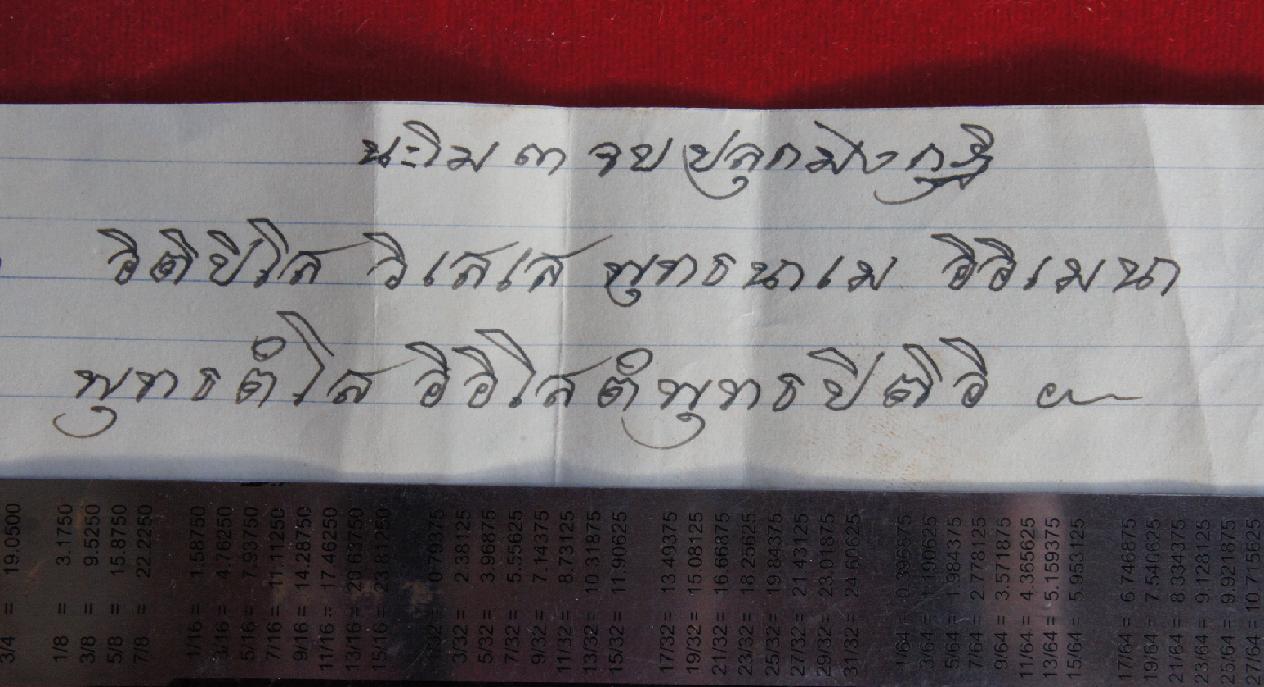 นะโม ๓ จบ ปลุกมังกฐิ
อิติปิโส วิเสเส พุทธนาเม อิอิเมนา
พุทธตังโส อิอิโสตังพุทธปิติอิ ๛
3/4 = 19.0500
1/8 = 3.1750
3/8 = 9.5250
5/8 = 15.8750
7/8 = 22.2250
1/16 = 1.58750
3/16 = 4.76250
5/16 = 7.93750
7/16 = 11.11250
9/16 = 14.28750
11/16 = 17.46250
13/16 = 20.63750
15/16 = 23.81250
1/32 = 0.79375
3/32 = 2.38125
5/32 = 3.96875
7/32 = 5.55625
9/32 = 7.14375
11/32 = 8.73125
13/32 = 10.31875
15/32 = 11.90625
17/32 = 13.49375
19/32 = 15.08125
21/32 = 16.66875
23/32 = 18.25625
25/32 = 19.84375
27/32 = 21.43125
29/32 = 23.01875
31/32 = 24.60625
1/64 = 0.396875
3/64 = 1.190625
5/64 = 1.984375
7/64 = 2.778125
9/64 = 3.571875
11/64 = 4.365625
13/64 = 5.159375
15/64 = 5.953125
17/64 = 6.746875
19/64 = 7.540625
21/64 = 8.334375
23/64 = 9.128125
25/64 = 9.921875
27/64 = 10.715625